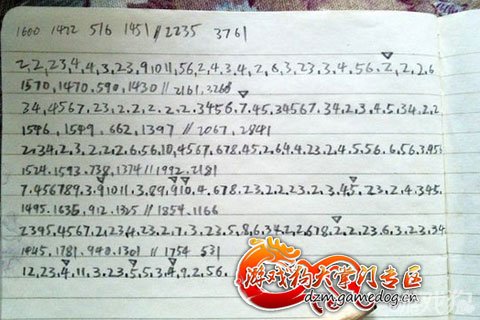 1600 1422 516 1451 // 2235 3761
2,2,23,4,4,3,23,9,10,11,56,2,4,3,4,2,6,3,23,3,4,56.2,2,2,6
1570,1470,590,1430 // 2161,3268
34,4567,23,2,2,2,2,2,3456,7.45,34567,34.2,3,4,5,34,2,2
1546,1549,662,1397 // 2067,2841
2,34,2,3,2,2,2,6,56,10,4567,678,45,2,64,4,23,2,4,5,56,6,56,3,45
1524.1593.738,1374 // 1992.2181
7.456789,3,91011,3,89,910,4,678,23,2,2,23,2,3,45,23,2,4,345
1495.1635,912.1325 // 1854.1166
2395.4567.2,234,23,2,7,3,23,5,8,6,34,2,2678,2,2,23,6,3,23,34
1445.1781,940.1301 // 1754 531
12,23,4,11,3,23,5,5,3,4,9,2,56.
游戏狗大掌门专区
dzm.gamedog.cn